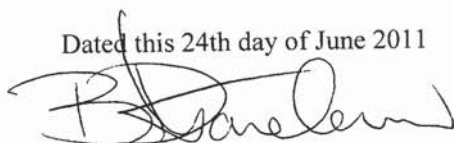 Dated this 24th day of June 2011